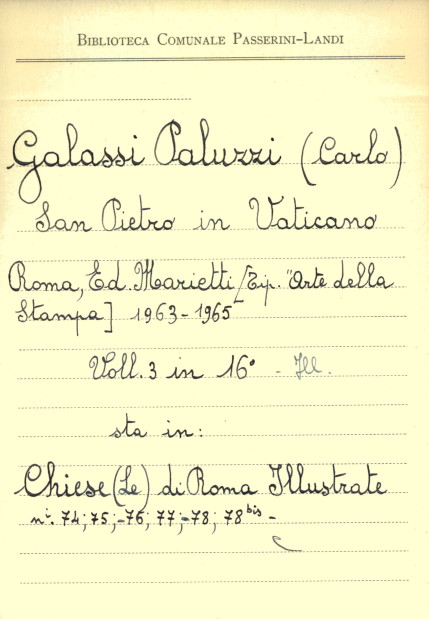 BIBLIOTECA COMUNALE PASSERINI-LANDI
Galassi Paluzzi (Carlo)
San Pietro in Vaticano
Roma, Ed. Marietti [Tip. "Arte della
Stampa] 1963-1965
Voll. 3 in 16° - Ill.
sta in:
Chiese (Le) di Roma Illustrate
ni. 74; 75; -76; 77; -78; 78 bis -